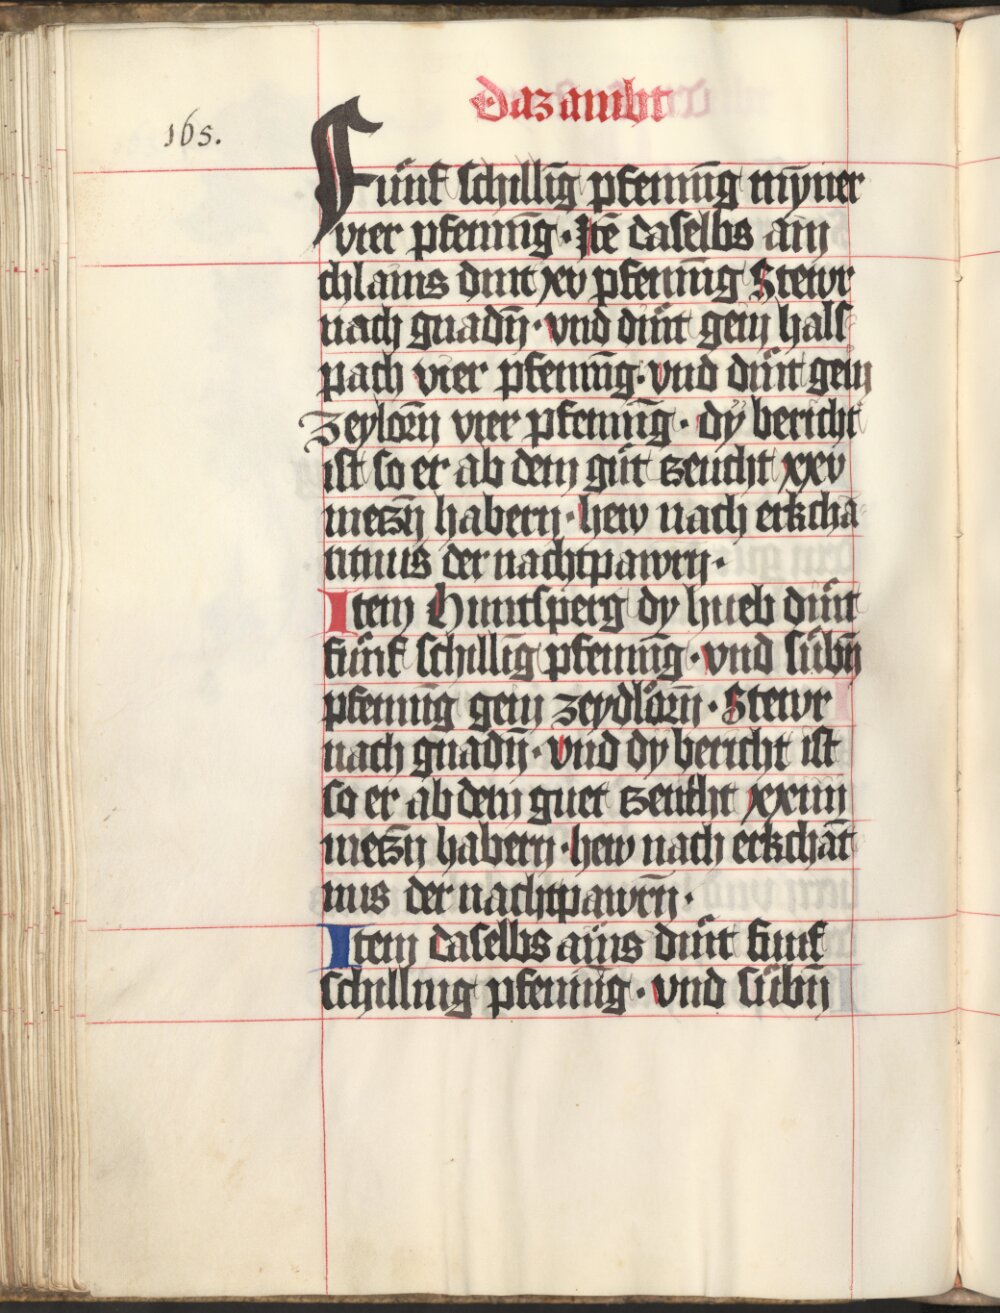 Daz ambt
165.
Fünf schilling pfenning mÿner
vier pfenning · Itē daselbs ain
chlains dint xv pfenning Stewr
nach gnadn̄ · vnd dint gein hals
pach vier pfenning · vnd dint gein
Zeylorn̄ vier pfenning · dy bericht
ist so er ab dem gůt tzeucht xxv
metzn̄ habern · hew nach erkchā
titnus der nachtpawrn ·
Item Huntsperg dy hueb dint
fünf schilling pfenning · vnd sübn̄
pfenning gein zeydlörn̄ · Stewr
nach gnadn̄ · vnd dy bericht ist
so er ab dem guet tzeucht xxiiii
metzn̄ habern · hew nach erkchāt
nus der nachtpawrn̄ ·
Item daselbs ains dint fünf
schilling pfenning · vnd sübn̄